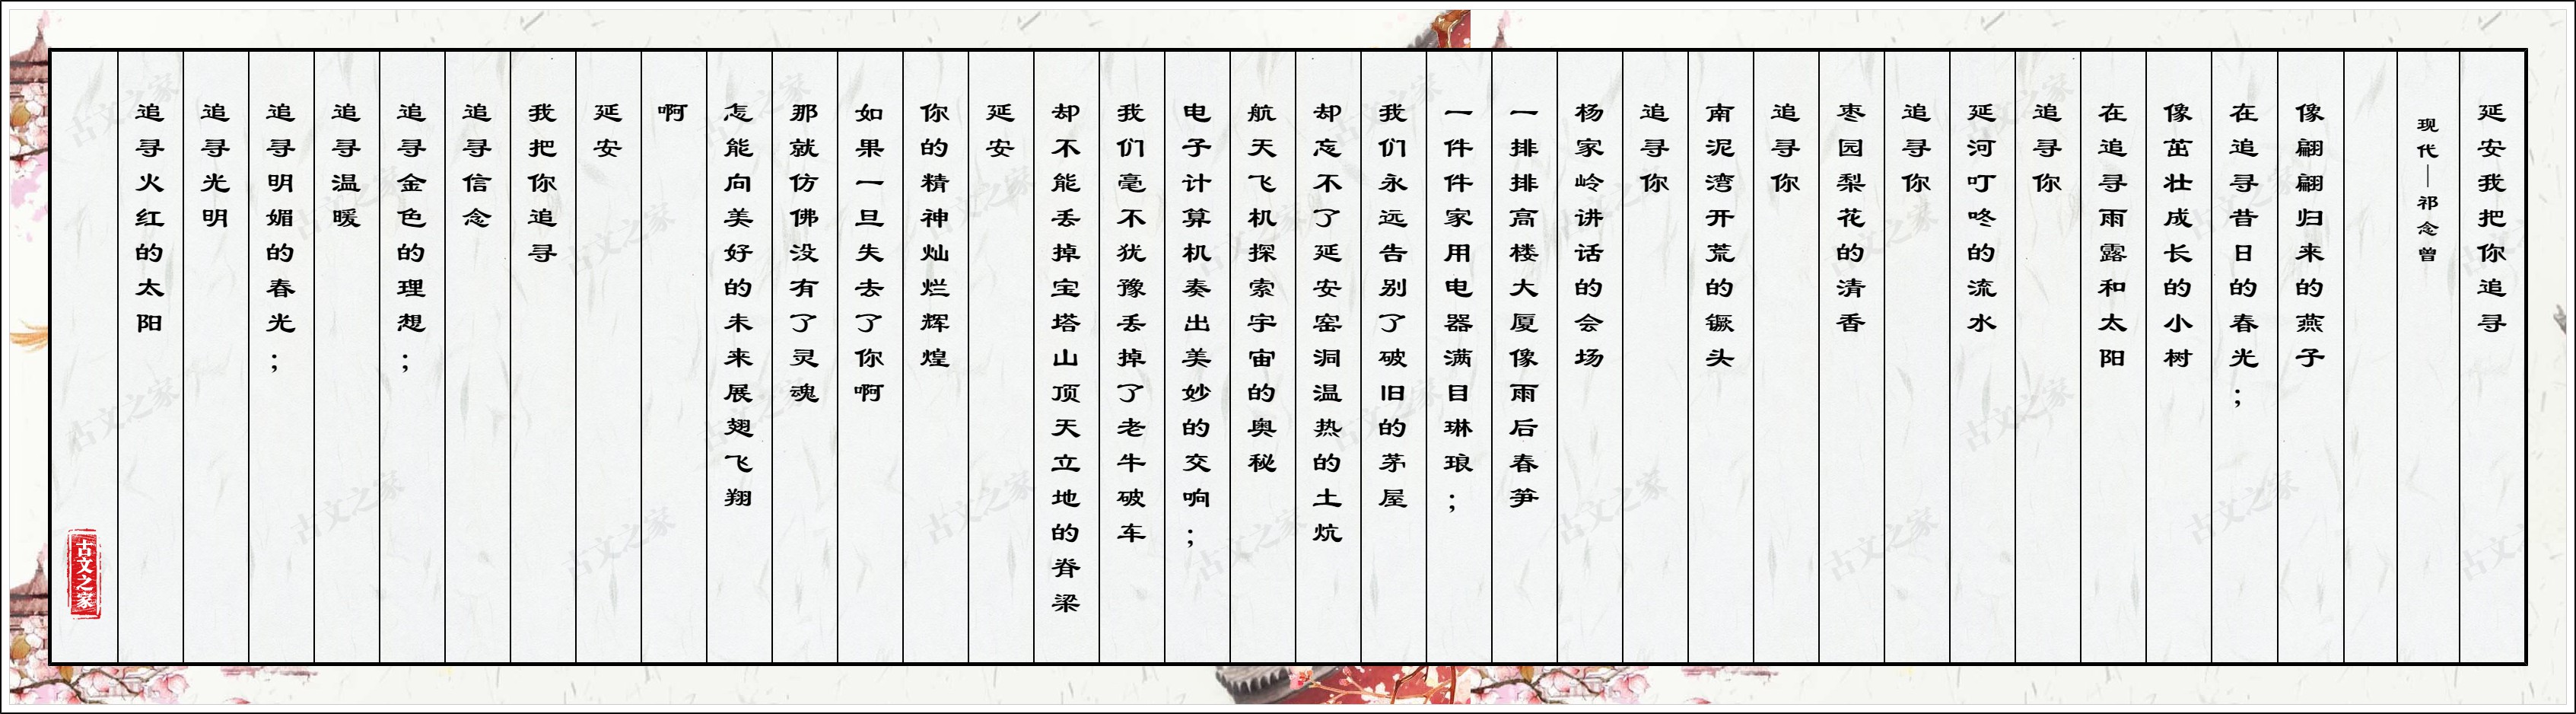 延安我把你追寻
现代—祁念曾
像翩翩归来的燕子
在追寻昔日的春光；
像茁壮成长的小树
在追寻雨露和太阳
追寻你
延河叮咚的流水
追寻你
枣园梨花的清香
追寻你
南泥湾开荒的镢头
追寻你
杨家岭讲话的会场
一排排高楼大厦像雨后春笋
一件件家用电器满目琳琅；
我们永远告别了破旧的茅屋
却忘不了延安窑洞温热的土炕
航天飞机探索宇宙的奥秘
电子计算机奏出美妙的交响；
我们毫不犹豫丢掉了老牛破车
却不能丢掉宝塔山顶天立地的脊梁
延安
你的精神灿烂辉煌
如果一旦失去了你啊
那就仿佛没有了灵魂
怎能向美好的未来展翅飞翔
啊
延安
我把你追寻
追寻信念
追寻金色的理想；
追寻温暖
追寻明媚的春光；
追寻光明
追寻火红的太阳
古文之家